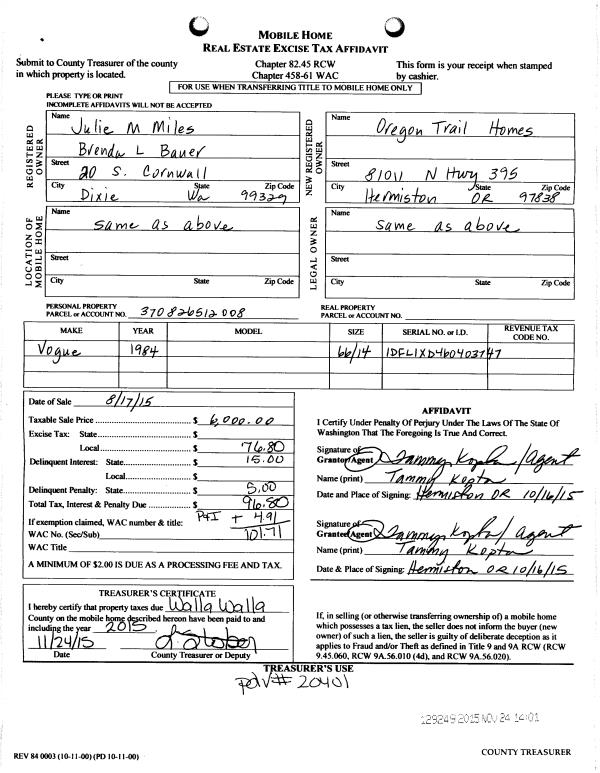 MOBILE HOME
REAL ESTATE EXCISE TAX AFFIDAVIT
Submit to County Treasurer of the county
in which property is located.
Chapter 82.45 RCW
Chapter 458-61 WAC
This form is your receipt when stamped
by cashier.
FOR USE WHEN TRANSFERRING TITLE TO MOBILE HOME ONLY
PLEASE TYPE OR PRINT
INCOMPLETE AFFIDAVITS WILL NOT BE ACCEPTED
REGISTERED OWNER
Name Julie M Miles
Brenda L Bauer
Street 20 S. Cornwall
City State Zip Code
Dixie Wa 99329
NEW REGISTERED OWNER
Name Oregon Trail Homes
Street 81011 N Hwy 395
City State Zip Code
Hermiston OR 97838
LOCATION OF MOBILE HOME
Name same as above
Street
City State Zip Code
LEGAL OWNER
Name same as above
Street
City State Zip Code
PERSONAL PROPERTY
PARCEL or ACCOUNT NO. 370826512008
REAL PROPERTY
PARCEL or ACCOUNT NO.
MAKE YEAR MODEL SIZE SERIAL NO. or I.D. REVENUE TAX CODE NO.
Vogue 1984 66/14 IDFL1XD460403747
Date of Sale 8/17/15
Taxable Sale Price $ 6,000.00
Excise Tax: State $
Local $ 76.80
Delinquent Interest: State $ 15.00
Local $
Delinquent Penalty: State $ 5.00
Total Tax, Interest & Penalty Due $ 96.80
If exemption claimed, WAC number & title: P&I + 4.91
WAC No. (Sec/Sub) 101.71
WAC Title
A MINIMUM OF $2.00 IS DUE AS A PROCESSING FEE AND TAX.
AFFIDAVIT
I Certify Under Penalty Of Perjury Under The Laws Of The State Of
Washington That The Foregoing Is True And Correct.
Signature of
Grantor/Agent Tammy Kopta / Agent
Name (print) Tammy Kopta
Date and Place of Signing: Hermiston OR 10/16/15
Signature of
Grantee/Agent Tammy Kopta / Agent
Name (print) Tammy Kopta
Date & Place of Signing: Hermiston OR 10/16/15
TREASURER'S CERTIFICATE
I hereby certify that property taxes due Walla Walla
County on the mobile home described hereon have been paid to and
including the year 2015.
11/24/15
Date County Treasurer or Deputy
If, in selling (or otherwise transferring ownership of) a mobile home
which possesses a tax lien, the seller does not inform the buyer (new
owner) of such a lien, the seller is guilty of deliberate deception as it
applies to Fraud and/or Theft as defined in Title 9 and 9A RCW (RCW
9.45.060, RCW 9A.56.010 (4d), and RCW 9A.56.020).
TREASURER'S USE
pd V# 20401
129249 2015 NOV 24 14:01
REV 84 0003 (10-11-00) (PD 10-11-00)
COUNTY TREASURER